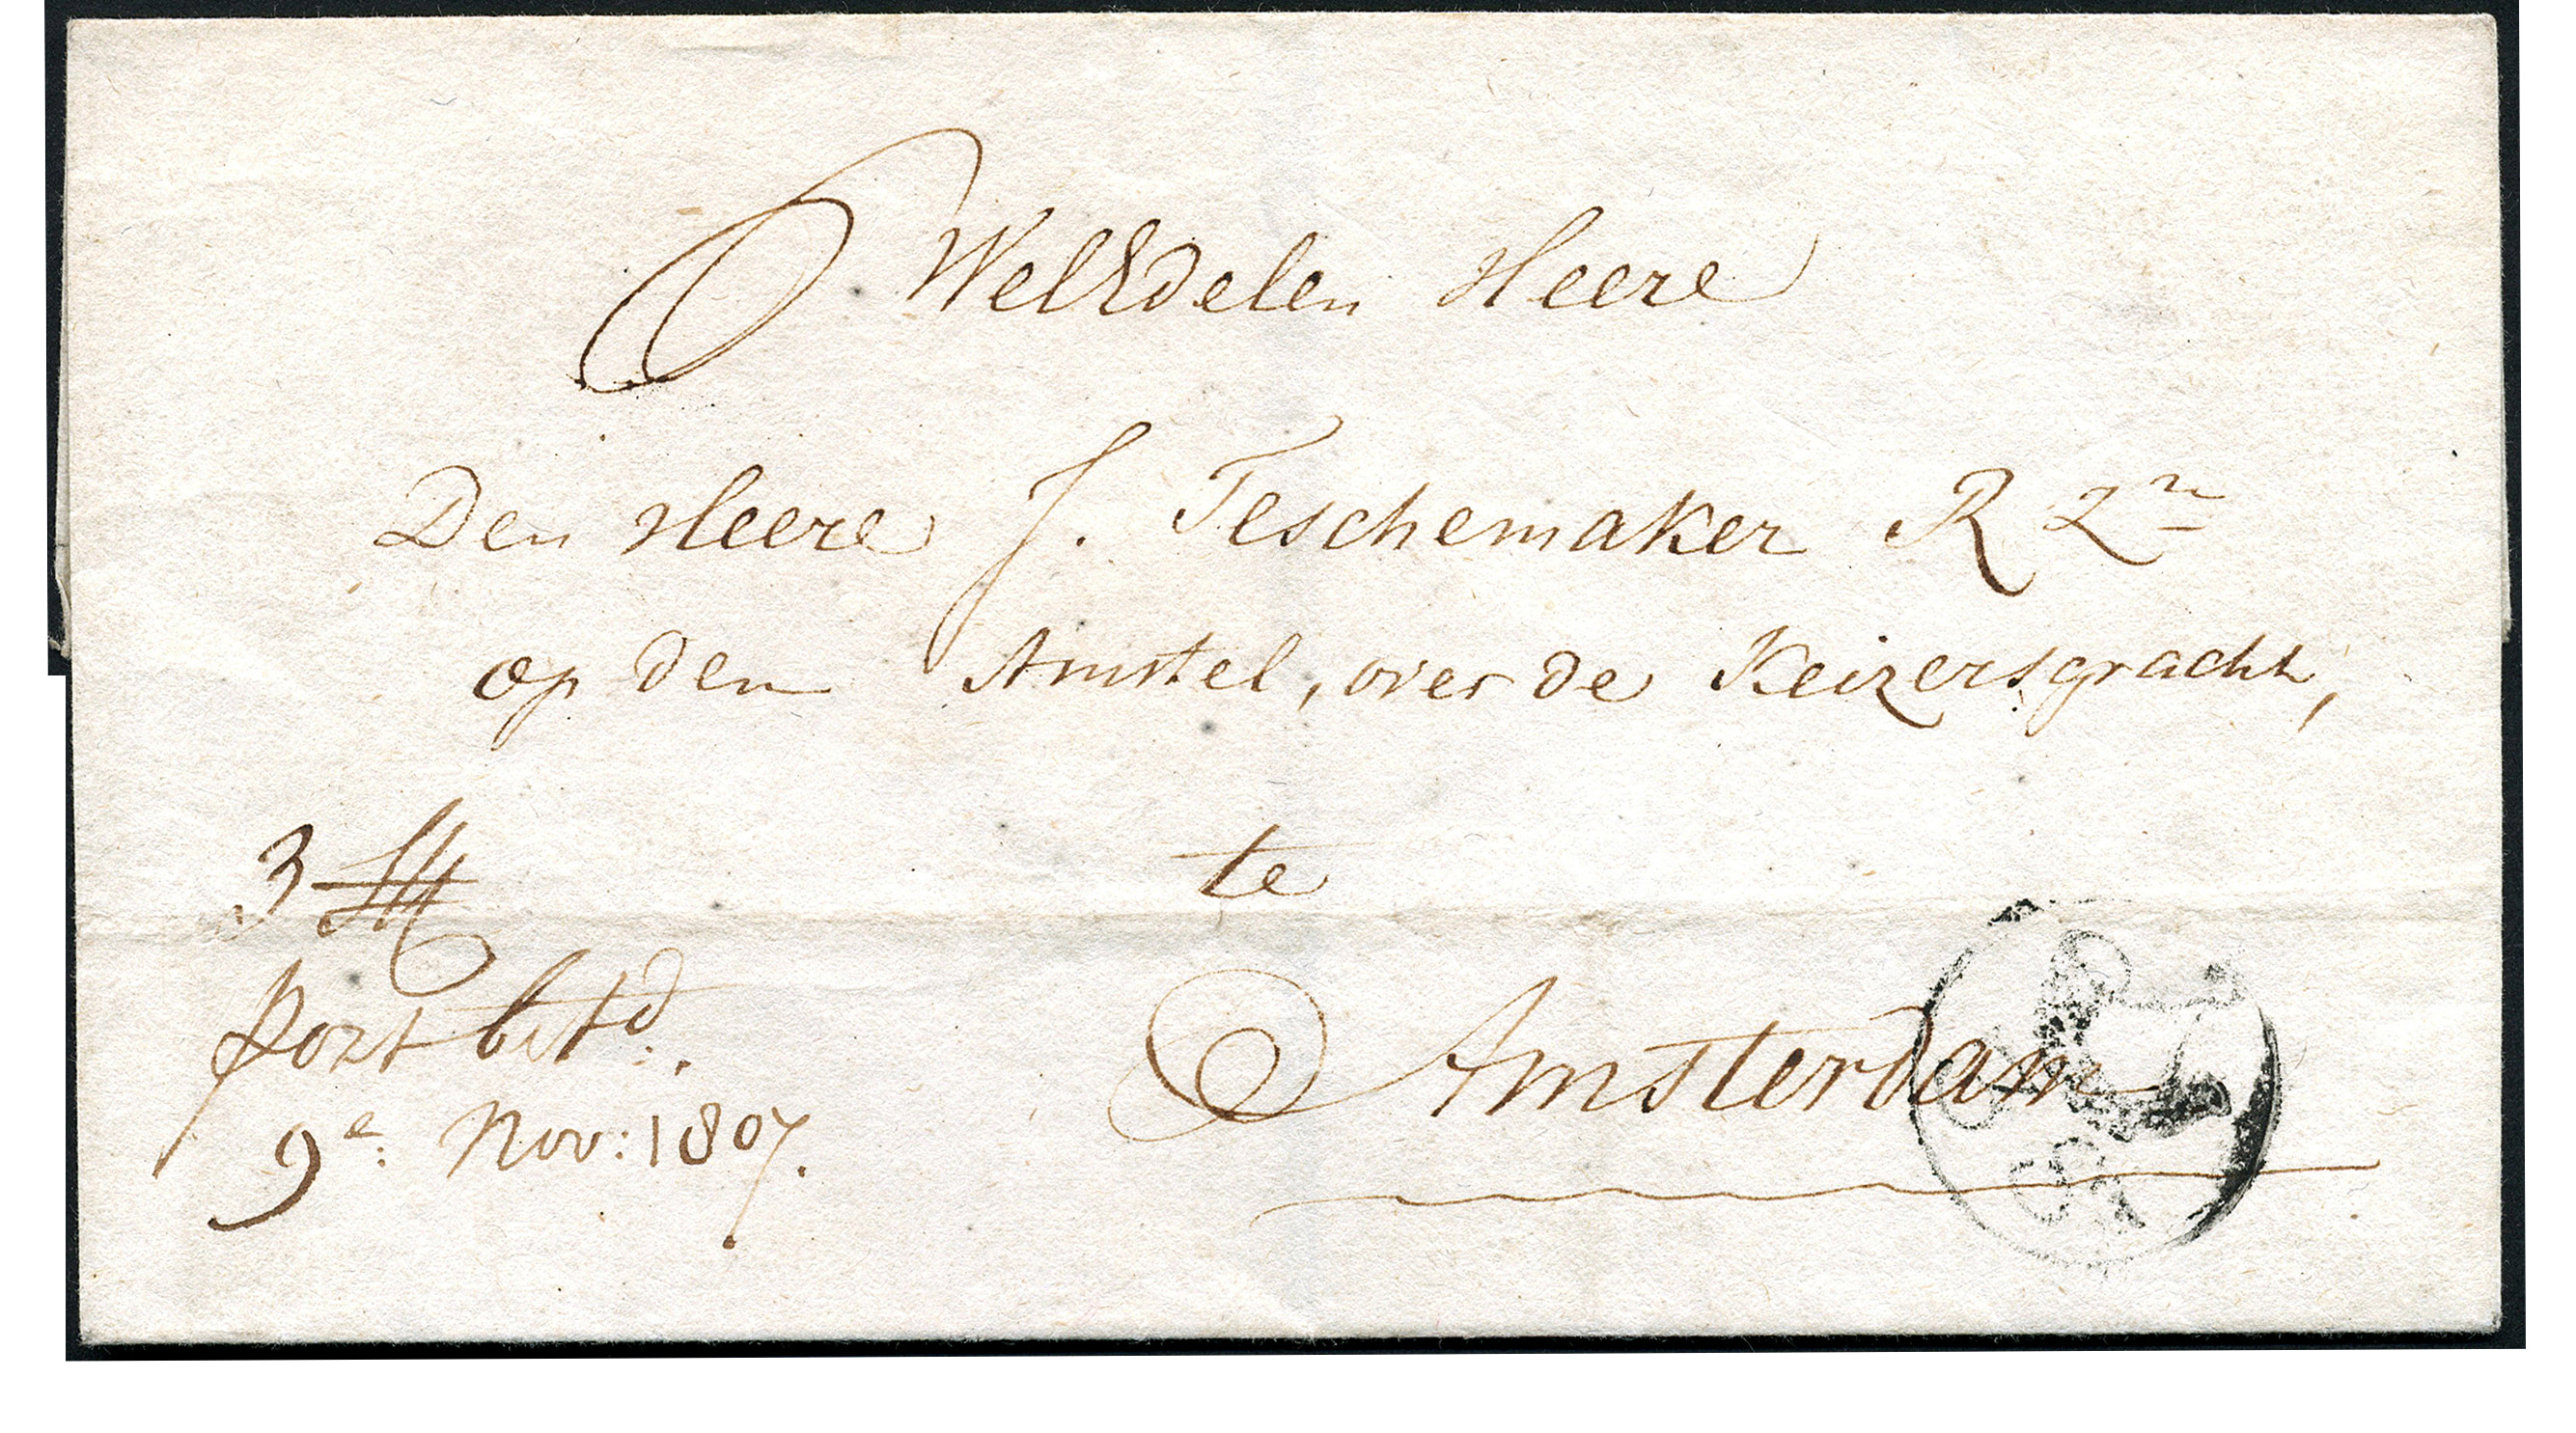 WelEdelen Heere
Den Heere J. Teschemaker R Zn
op den Amstel, over de Keizersgracht,
te
Amsterdam
3 St
port betd.
9e: Nov: 1807.